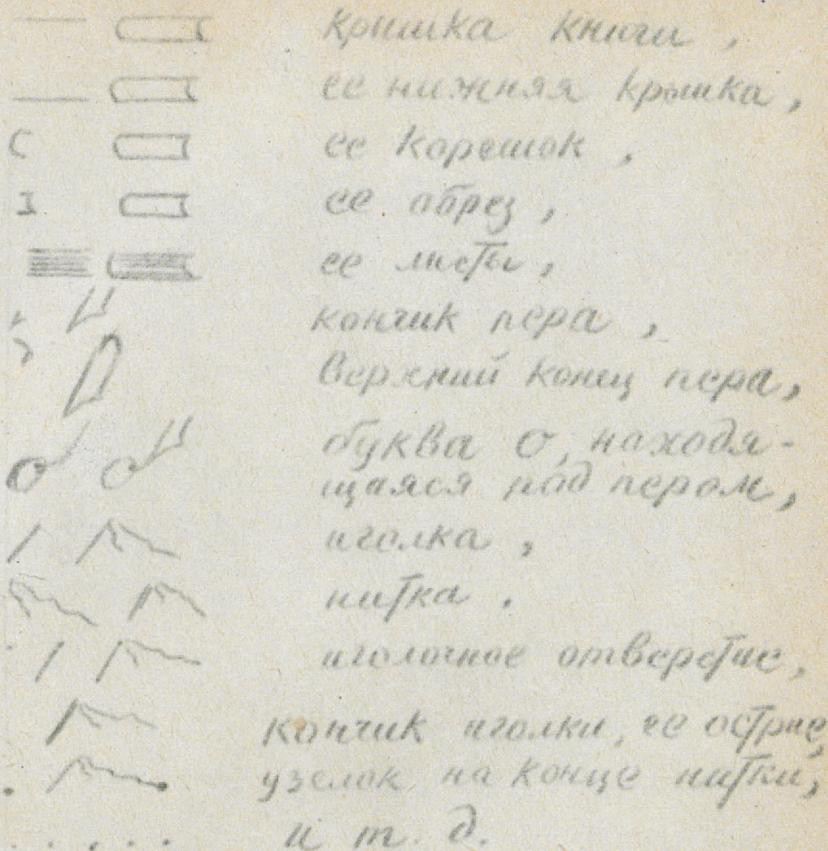 крышка книги,
ее нижняя крышка,
ее корешок,
ее обрез,
ее листы,
кончик пера,
верхний конец пера,
буква о, находя-
щаяся под пером,
иголка,
нитка.
иголочное отверстие,
кончик иголки, ее острие,
узелок на конце нитки,
и т. д.